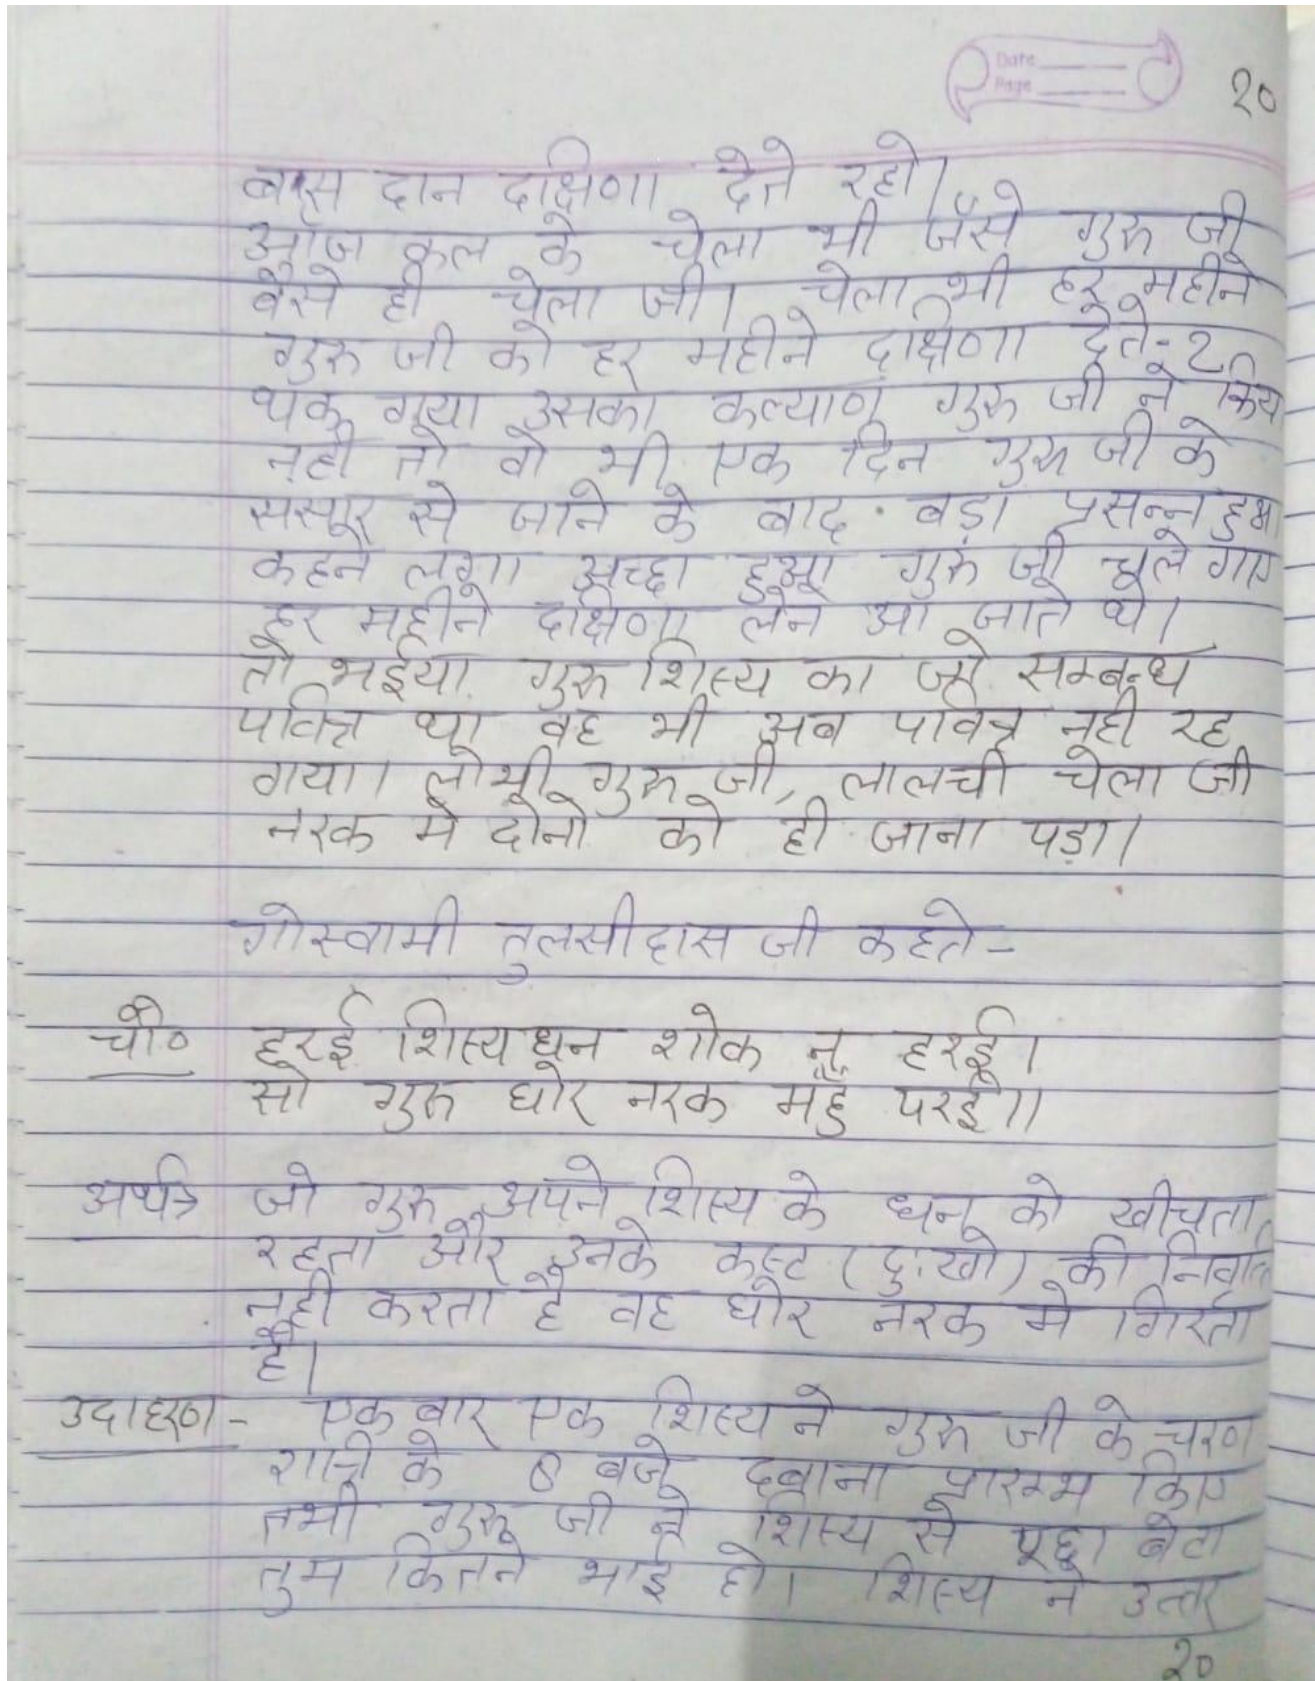 Date
Page
२०
बस दान दक्षिणा देते रहो।
आज कल के चेला भी जैसे गुरु जी
वैसे ही चेला जी। चेला भी हर महीने
गुरु जी को हर महीने दक्षिणा देते-2
थक गया उसका कल्याण गुरु जी ने किय
नही तो वो भी एक दिन गुरु जी के
संसार से जाने के बाद बड़ा प्रसन्न हुआ
कहने लगा अच्छा हुआ गुरु जी चले गए
हर महीने दक्षिणा लेने आ जाते थे।
तो भईया गुरु शिस्य का जो सम्बन्ध
पवित्र था वह भी अब पवित्र नही रह
गया। लोभी गुरु जी, लालची चेला जी
नरक मे दोनो को ही जाना पड़ा।
गोस्वामी तुलसीदास जी कहते-
चौ० हरई शिस्य धन शोक न हरई।
सो गुरु घोर नरक महुँ परई।।
अर्थात् जो गुरु अपने शिस्य के धन को खीचता
रहता और उनके कस्ट (दुःखो) की
नही करता है वह घोर नरक मे गिरता
है।
उदाहरण- एक बार एक शिस्य ने गुरु जी के चरण
रात्री के 8 बजे दबाना प्रारम्भ किए
तभी गुरु जी ने शिस्य से पूछा बेटा
तुम कितने भाई हो। शिस्य ने उत्तर
२०